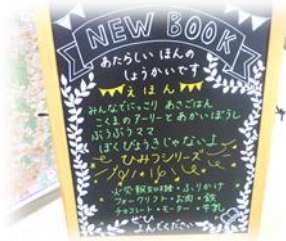 NEW BOOK
あたらしい ほんの
しょうかいです
えほん
みんなでにっこり あさごはん
こくまのアーリーとあかいぼうし
ぶうぶうママ
ぼくびょうきじゃないよ
ひみつシリーズ
火災報知機・ふりかけ
フォークリフト・お肉・鉄
チョコレート・モーター・牛乳
ぜひ
よんでください